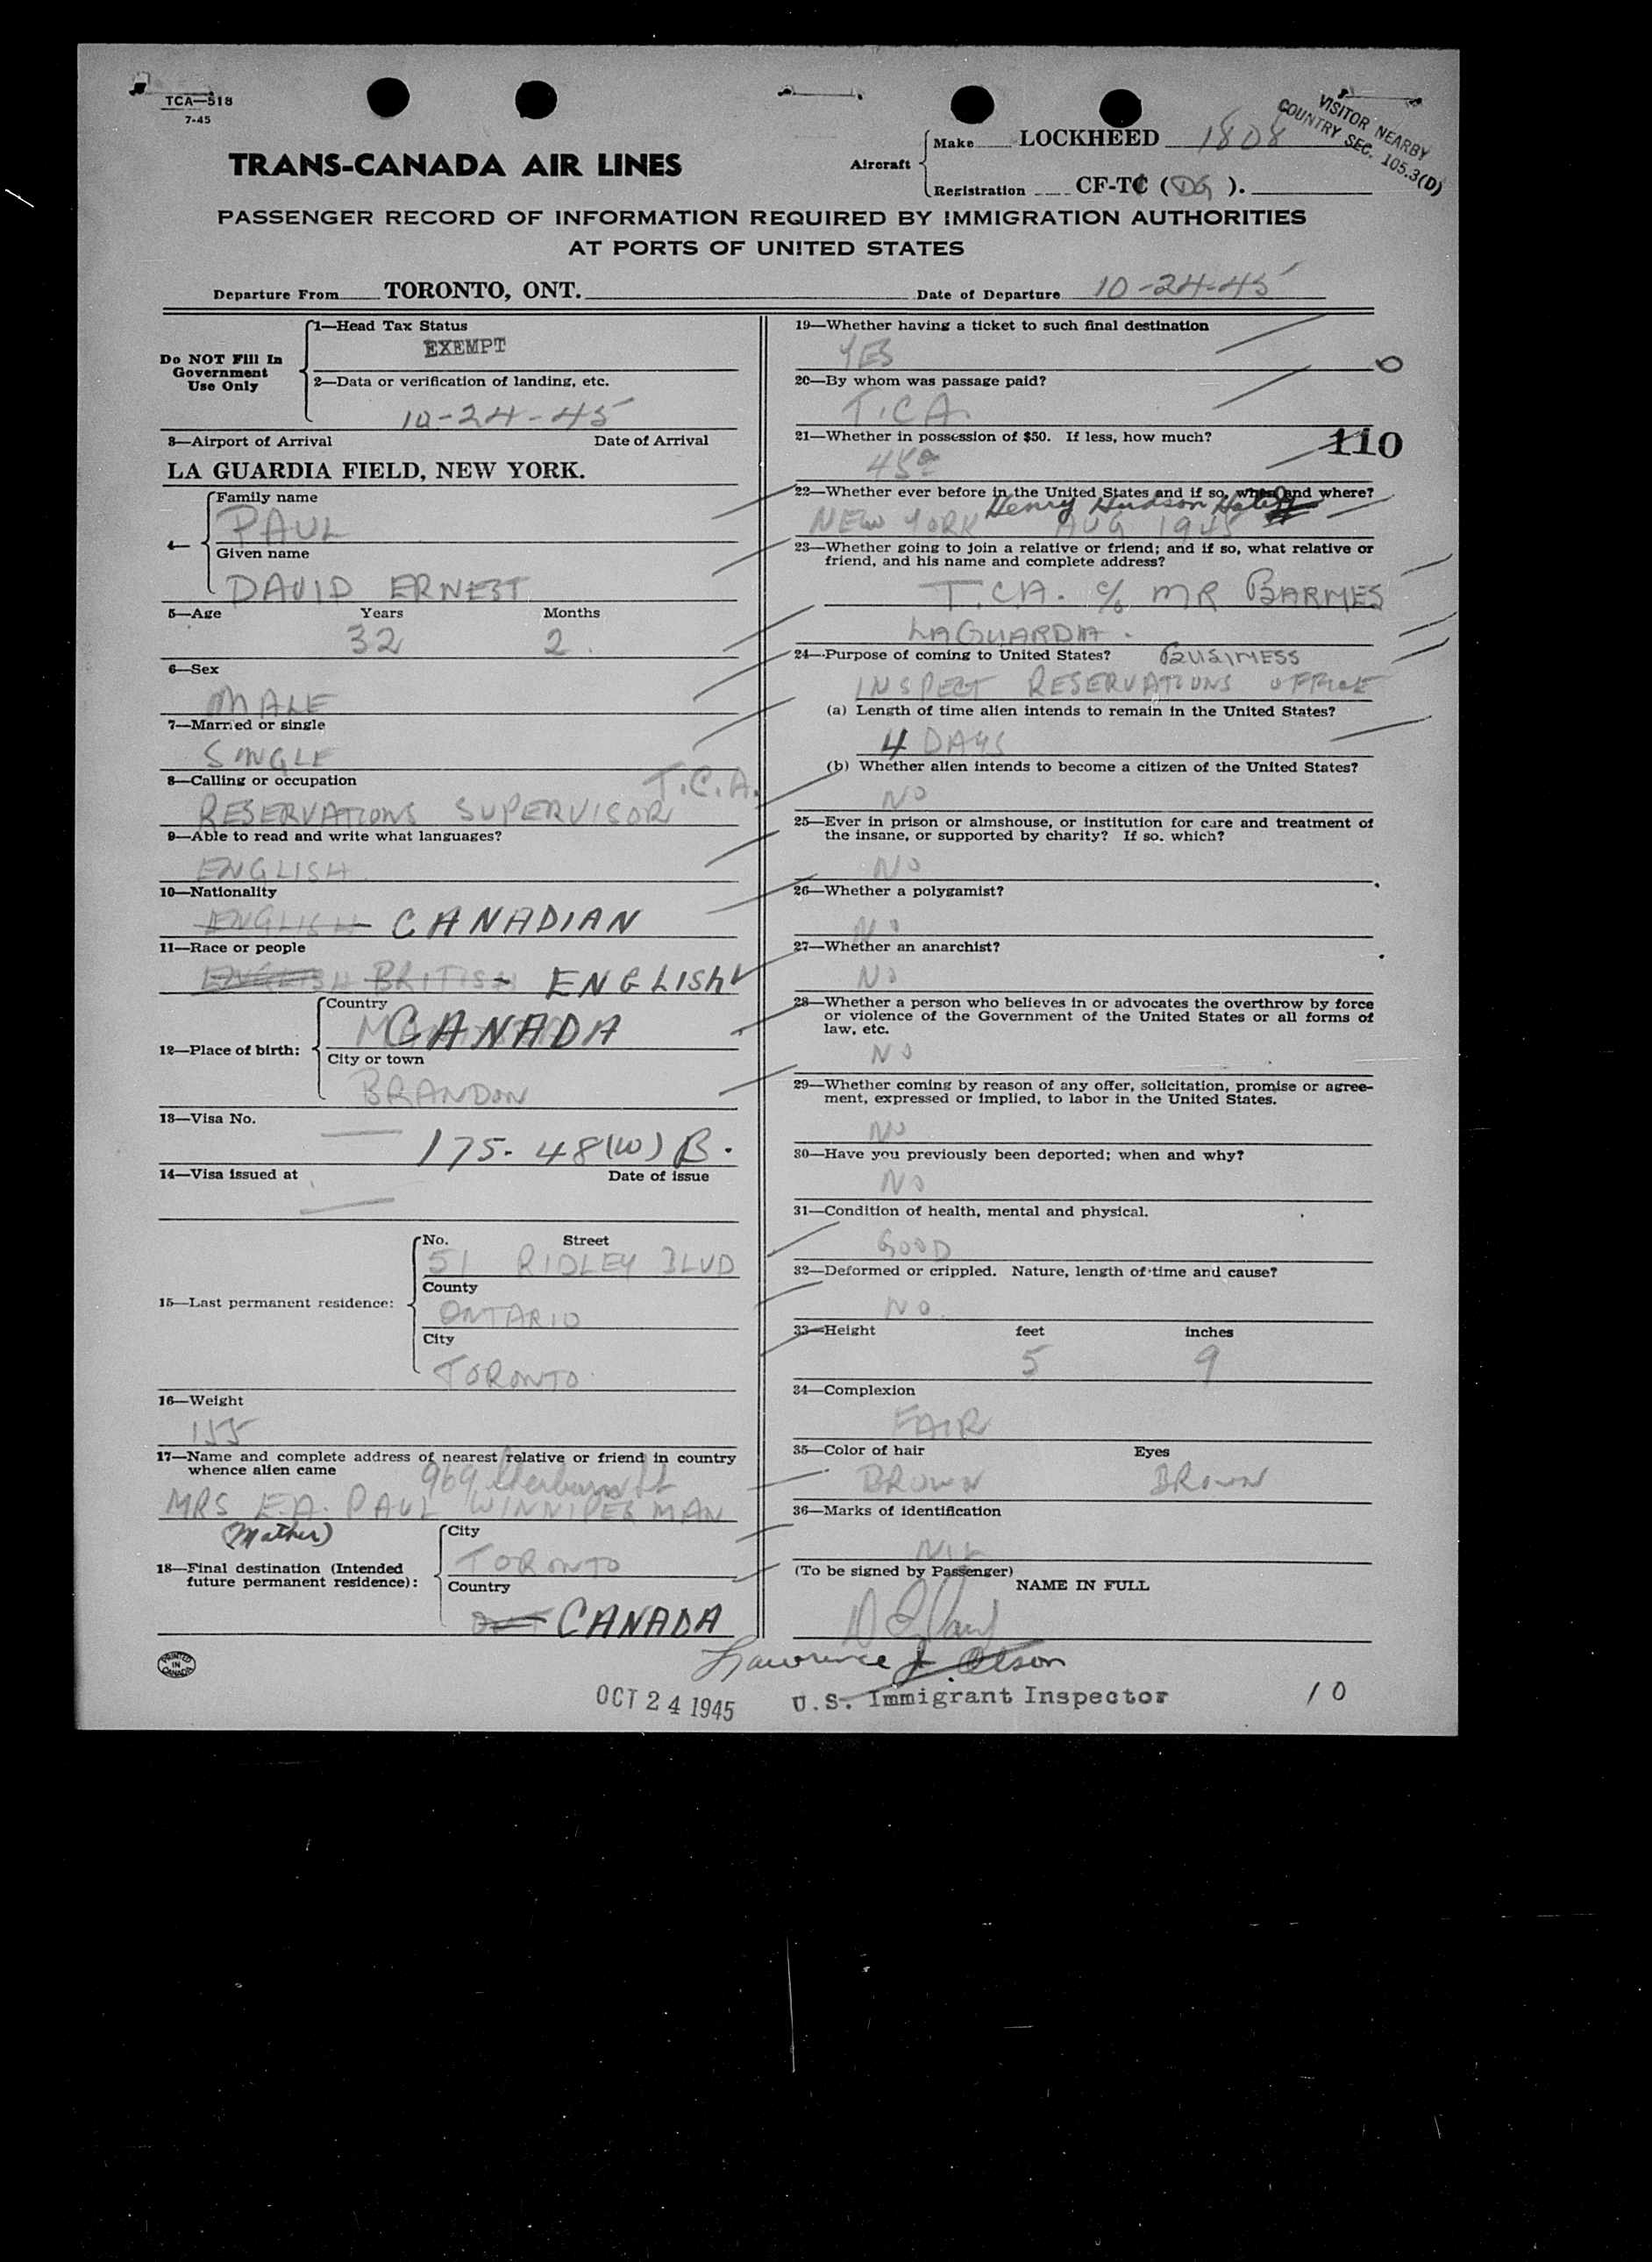 TCA—518
7-45
VISITOR NEARBY
COUNTRY SEC. 105.3(D)
TRANS-CANADA AIR LINES
Aircraft
Make LOCKHEED 1808
Registration CF-TC (DG).
PASSENGER RECORD OF INFORMATION REQUIRED BY IMMIGRATION AUTHORITIES
AT PORTS OF UNITED STATES
Departure From TORONTO, ONT. Date of Departure 10-24-45
Do NOT Fill In
Government
Use Only
1—Head Tax Status
EXEMPT
2—Data or verification of landing, etc.
10-24-45
3—Airport of Arrival Date of Arrival
LA GUARDIA FIELD, NEW YORK.
4—
Family name
PAUL
Given name
DAVID ERNEST
5—Age Years Months
32 2.
6—Sex
MALE
7—Married or single
SINGLE
8—Calling or occupation T.C.A.
RESERVATIONS SUPERVISOR
9—Able to read and write what languages?
ENGLISH
10—Nationality
ENGLISH CANADIAN
11—Race or people
ENGLISH BRITISH ENGLISH
12—Place of birth:
Country
CANADA
City or town
BRANDON
13—Visa No.
175-48(W) B.
14—Visa issued at Date of issue
15—Last permanent residence:
No. Street
51 RIDLEY BLVD
County
ONTARIO
City
TORONTO
16—Weight
155
17—Name and complete address of nearest relative or friend in country
whence alien came 969
MRS E.A. PAUL WINNIPEG MAN
(Mother)
18—Final destination (Intended
future permanent residence):
City
TORONTO
Country
ONT CANADA
PRINTED
IN
CANADA
19—Whether having a ticket to such final destination
YES
20—By whom was passage paid?
T.C.A.
21—Whether in possession of $50. If less, how much? 110
45
22—Whether ever before in the United States and if so, when and where?
Henry Hudson Hotel
NEW YORK AUG 1945
23—Whether going to join a relative or friend; and if so, what relative or
friend, and his name and complete address?
T.C.A. c/o MR BARMES
LAGUARDIA.
24—Purpose of coming to United States? BUSINESS
INSPECT RESERVATIONS OFFICE
(a) Length of time alien intends to remain in the United States?
4 DAYS
(b) Whether alien intends to become a citizen of the United States?
NO
25—Ever in prison or almshouse, or institution for care and treatment of
the insane, or supported by charity? If so, which?
NO
26—Whether a polygamist?
NO
27—Whether an anarchist?
NO
28—Whether a person who believes in or advocates the overthrow by force
or violence of the Government of the United States or all forms of
law, etc.
NO
29—Whether coming by reason of any offer, solicitation, promise or agree-
ment, expressed or implied, to labor in the United States.
NO
30—Have you previously been deported; when and why?
NO
31—Condition of health, mental and physical.
GOOD
32—Deformed or crippled. Nature, length of time and cause?
NO.
33—Height feet inches
5 9
34—Complexion
FAIR
35—Color of hair Eyes
BROWN BROWN
36—Marks of identification
NIL
(To be signed by Passenger)
NAME IN FULL
D E Paul
Lawrence J. Olson
OCT 24 1945 U.S. Immigrant Inspector 10